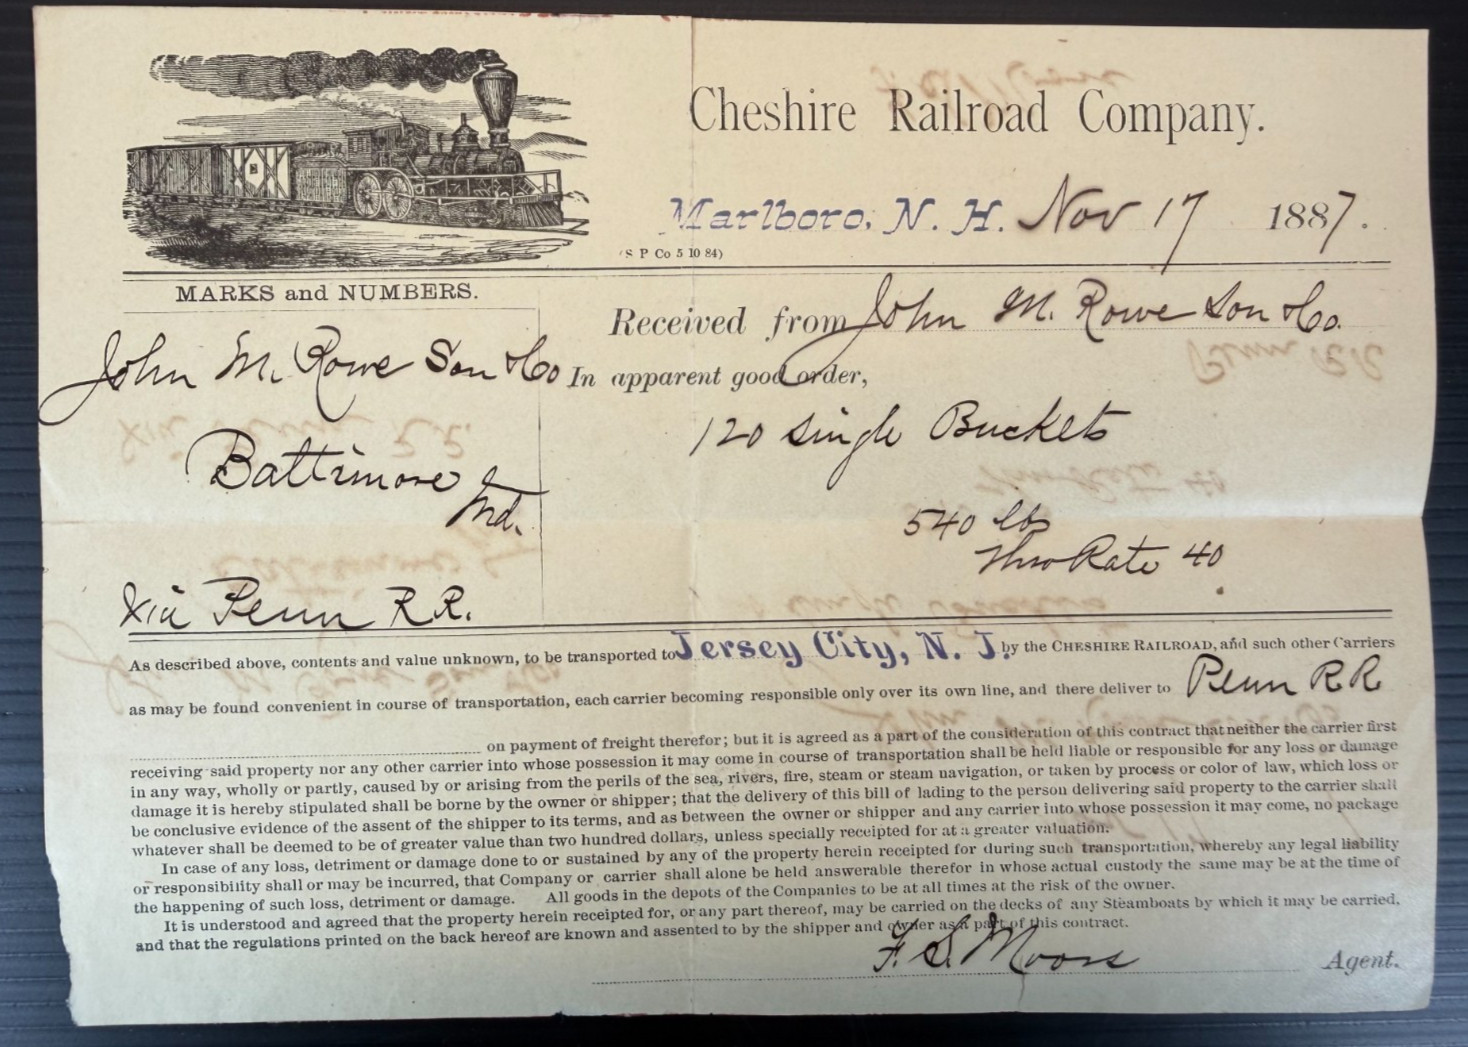 Cheshire Railroad Company.
Marlboro, N. H. Nov 17 1887.
(S P Co 5 10 84)
MARKS and NUMBERS.
John M. Rowe Son & Co
Baltimore
Md.
Via Penn R.R.
Received from John M. Rowe Son & Co.
In apparent good order,
120 single Buckets
540 lbs
Thro Rate 40
As described above, contents and value unknown, to be transported to Jersey City, N. J. by the CHESHIRE RAILROAD, and such other Carriers
as may be found convenient in course of transportation, each carrier becoming responsible only over its own line, and there deliver to Penn RR
on payment of freight therefor; but it is agreed as a part of the consideration of this contract that neither the carrier first
receiving said property nor any other carrier into whose possession it may come in course of transportation shall be held liable or responsible for any loss or damage
in any way, wholly or partly, caused by or arising from the perils of the sea, rivers, fire, steam or steam navigation, or taken by process or color of law, which loss or
damage it is hereby stipulated shall be borne by the owner or shipper; that the delivery of this bill of lading to the person delivering said property to the carrier shall
be conclusive evidence of the assent of the shipper to its terms, and as between the owner or shipper and any carrier into whose possession it may come, no package
whatever shall be deemed to be of greater value than two hundred dollars, unless specially receipted for at a greater valuation.
In case of any loss, detriment or damage done to or sustained by any of the property herein receipted for during such transportation, whereby any legal liability
or responsibility shall or may be incurred, that Company or carrier shall alone be held answerable therefor in whose actual custody the same may be at the time of
the happening of such loss, detriment or damage. All goods in the depots of the Companies to be at all times at the risk of the owner.
It is understood and agreed that the property herein receipted for, or any part thereof, may be carried on the decks of any Steamboats by which it may be carried,
and that the regulations printed on the back hereof are known and assented to by the shipper and owner as a part of this contract.
F. S. Moors Agent.